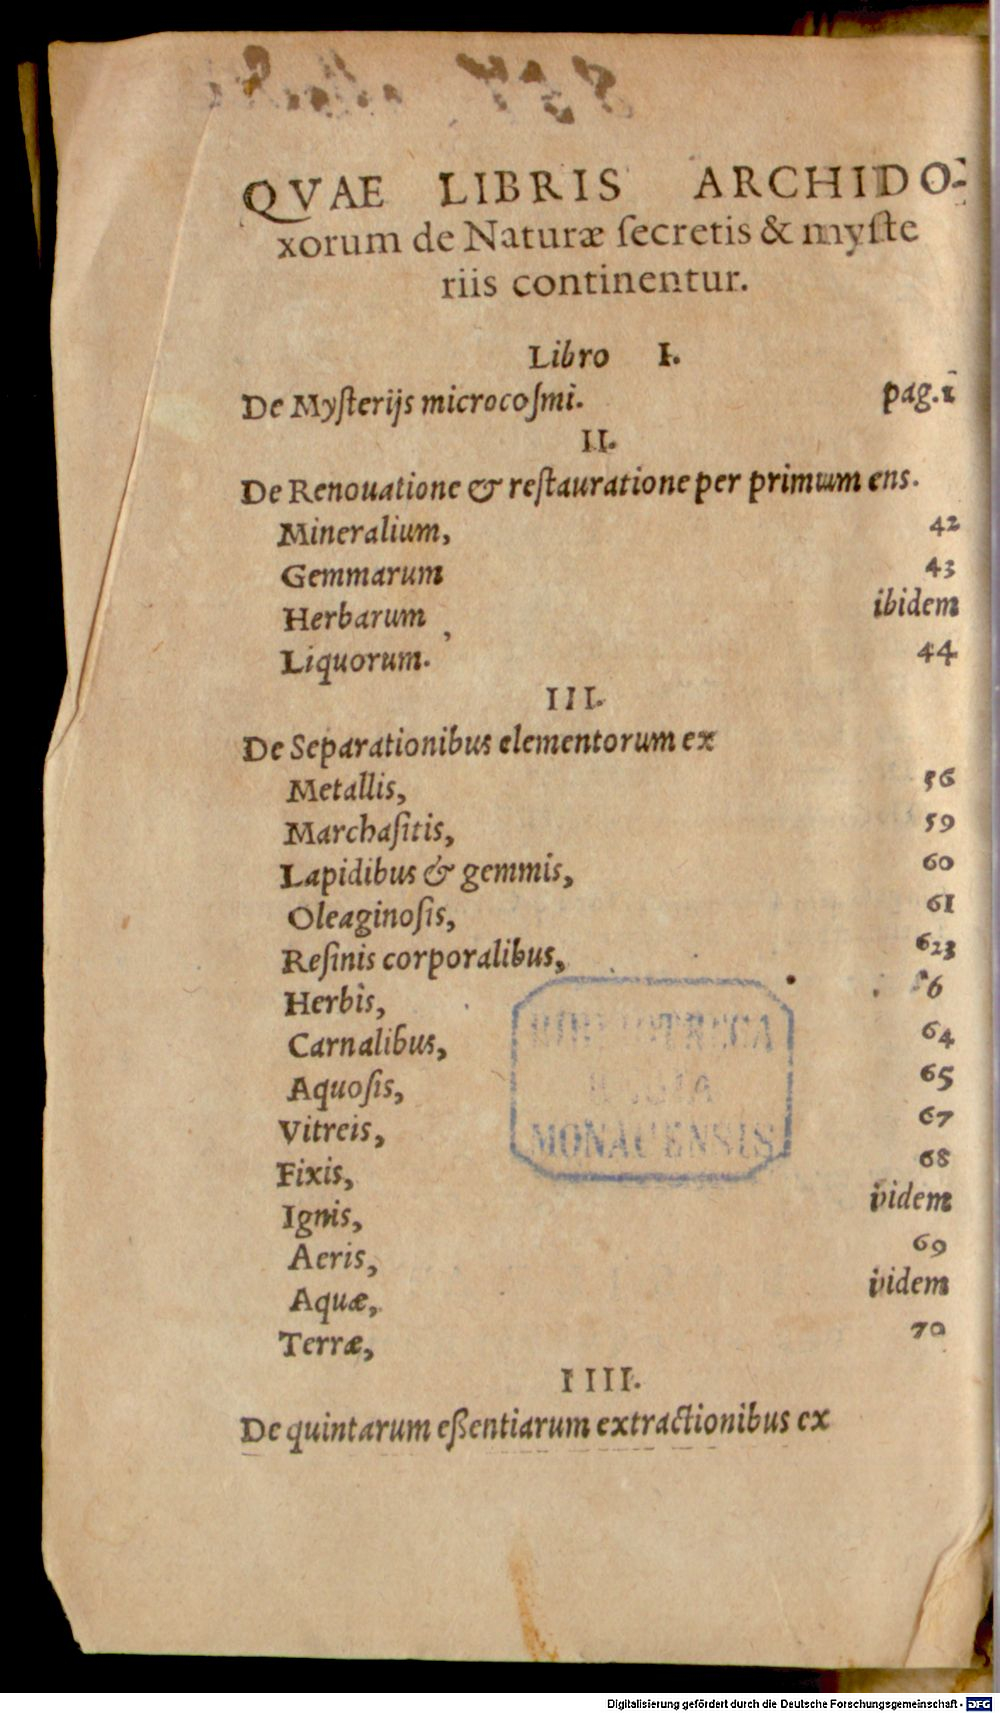 QVAE LIBRIS ARCHIDO-
xorum de Naturæ ſecretis & myſte
riis continentur.
Libro I.
De Myſterijs microcoſmi. pag.1
II.
De Renouatione & reſtauratione per primum ens.
Mineralium, 42
Gemmarum 43
Herbarum ibidem
Liquorum. 44
III.
De Separationibus elementorum ex
Metallis, 56
Marchaſitis, 59
Lapidibus & gemmis, 60
Oleaginoſis, 61
Reſinis corporalibus, 623
Herbis, 6
Carnalibus, 64
Aquoſis, 65
Vitreis, 67
Fixis, 68
Ignis, videm
Aeris, 69
Aquæ, videm
Terræ, 70
IIII.
De quintarum eßentiarum extractionibus ex
BIBLIOTHECA
REGIA
MONACENSIS
Digitalisierung gefördert durch die Deutsche Forschungsgemeinschaft - DFG